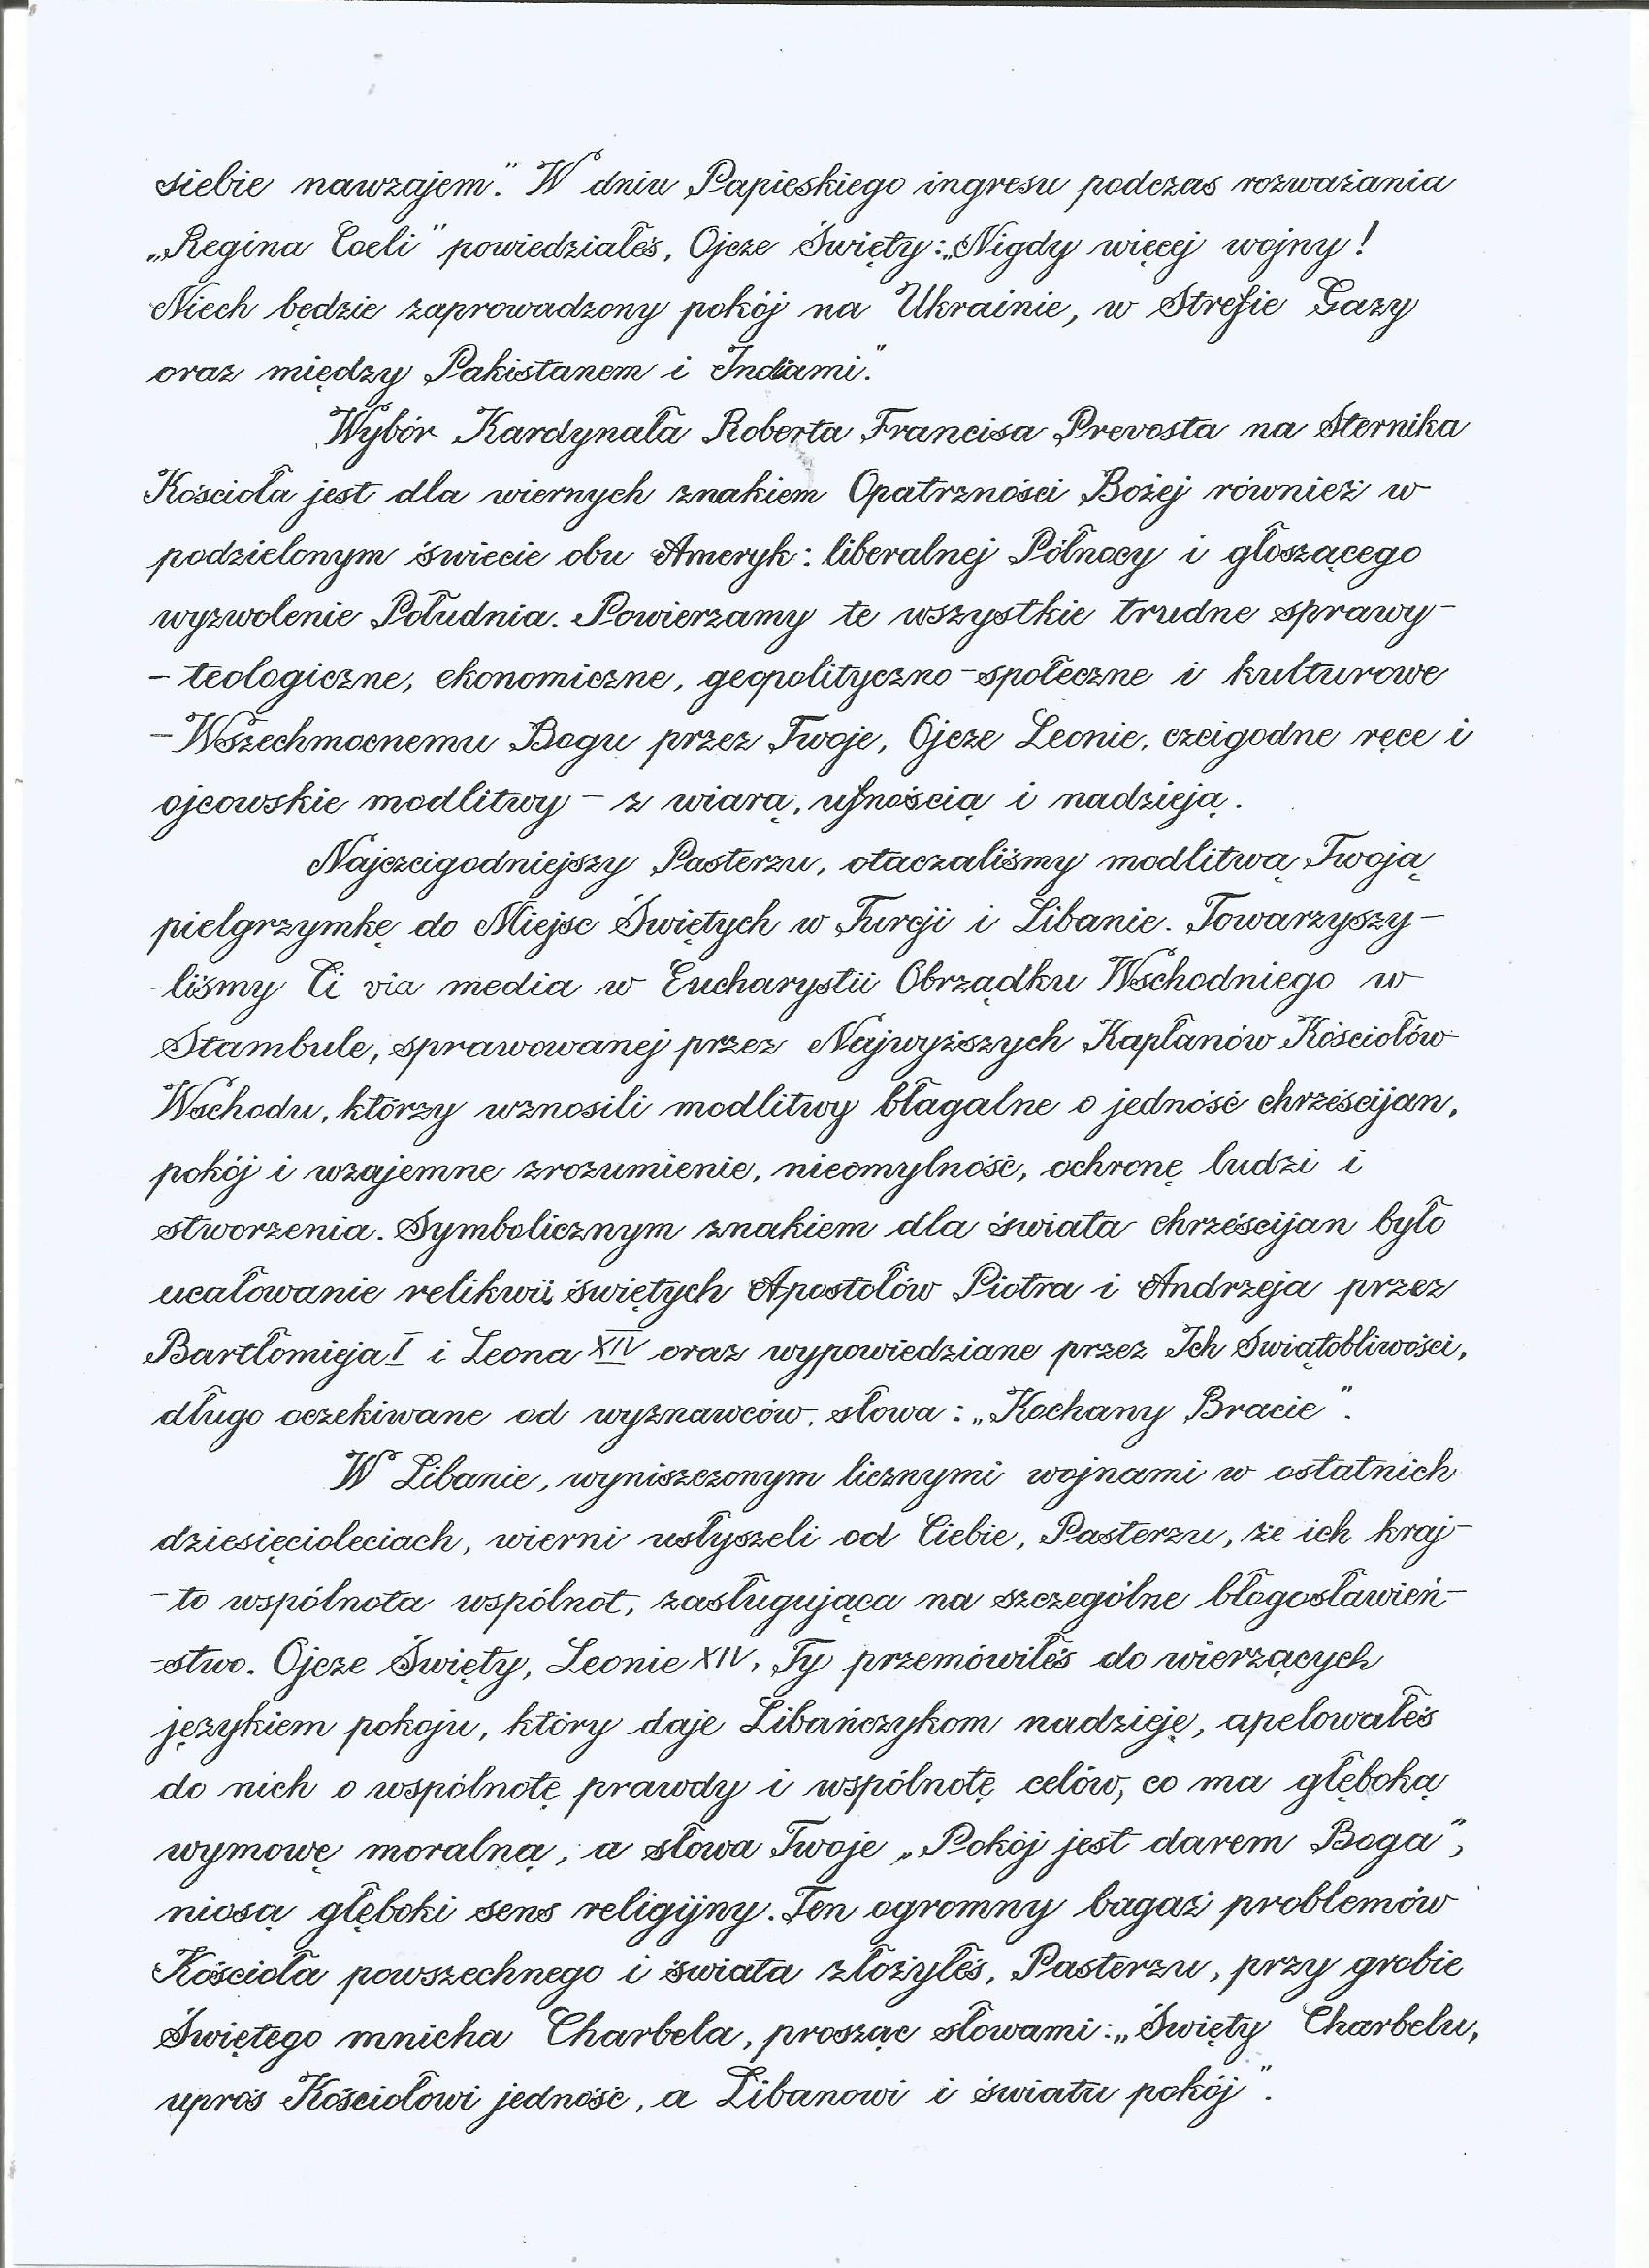 siebie nawzajem." W dniu Papieskiego ingresu podczas rozważania
„Regina Coeli" powiedziałeś, Ojcze Święty: „Nigdy więcej wojny!
Niech będzie zaprowadzony pokój na Ukrainie, w Strefie Gazy
oraz między Pakistanem i Indiami."
Wybór Kardynała Roberta Francisa Prevosta na Sternika
Kościoła jest dla wiernych znakiem Opatrzności Bożej również w
podzielonym świecie obu Ameryk: liberalnej Północy i głoszącego
wyzwolenie Południa. Powierzamy te wszystkie trudne sprawy -
- teologiczne, ekonomiczne, geopolityczno-społeczne i kulturowe
- Wszechmocnemu Bogu przez Twoje, Ojcze Leonie, czcigodne ręce i
ojcowskie modlitwy - z wiarą, ufnością i nadzieją.
Najczcigodniejszy Pasterzu, otaczaliśmy modlitwą Twoją
pielgrzymkę do Miejsc Świętych w Turcji i Libanie. Towarzyszy-
-liśmy Ci via media w Eucharystii Obrządku Wschodniego w
Stambule, sprawowanej przez Najwyższych Kapłanów Kościołów
Wschodu, którzy wznosili modlitwy błagalne o jedność chrześcijan,
pokój i wzajemne zrozumienie, nieomylność, ochronę ludzi i
stworzenia. Symbolicznym znakiem dla świata chrześcijan było
ucałowanie relikwii świętych Apostołów Piotra i Andrzeja przez
Bartłomieja I i Leona XIV oraz wypowiedziane przez Ich Świątobliwości,
długo oczekiwane od wyznawców, słowa: „Kochany Bracie".
W Libanie, wyniszczonym licznymi wojnami w ostatnich
dziesięcioleciach, wierni usłyszeli od Ciebie, Pasterzu, że ich kraj -
- to wspólnota wspólnot, zasługująca na szczególne błogosławień-
-stwo. Ojcze Święty, Leonie XIV, Ty przemówiłeś do wierzących
językiem pokoju, który daje Libańczykom nadzieję, apelowałeś
do nich o wspólnotę prawdy i wspólnotę celów, co ma głęboką
wymowę moralną, a słowa Twoje „Pokój jest darem Boga",
niosą głęboki sens religijny. Ten ogromny bagaż problemów
Kościoła powszechnego i świata złożyłeś, Pasterzu, przy grobie
Świętego mnicha Charbela, prosząc słowami: „Święty Charbelu,
uproś Kościołowi jedność, a Libanowi i światu pokój".